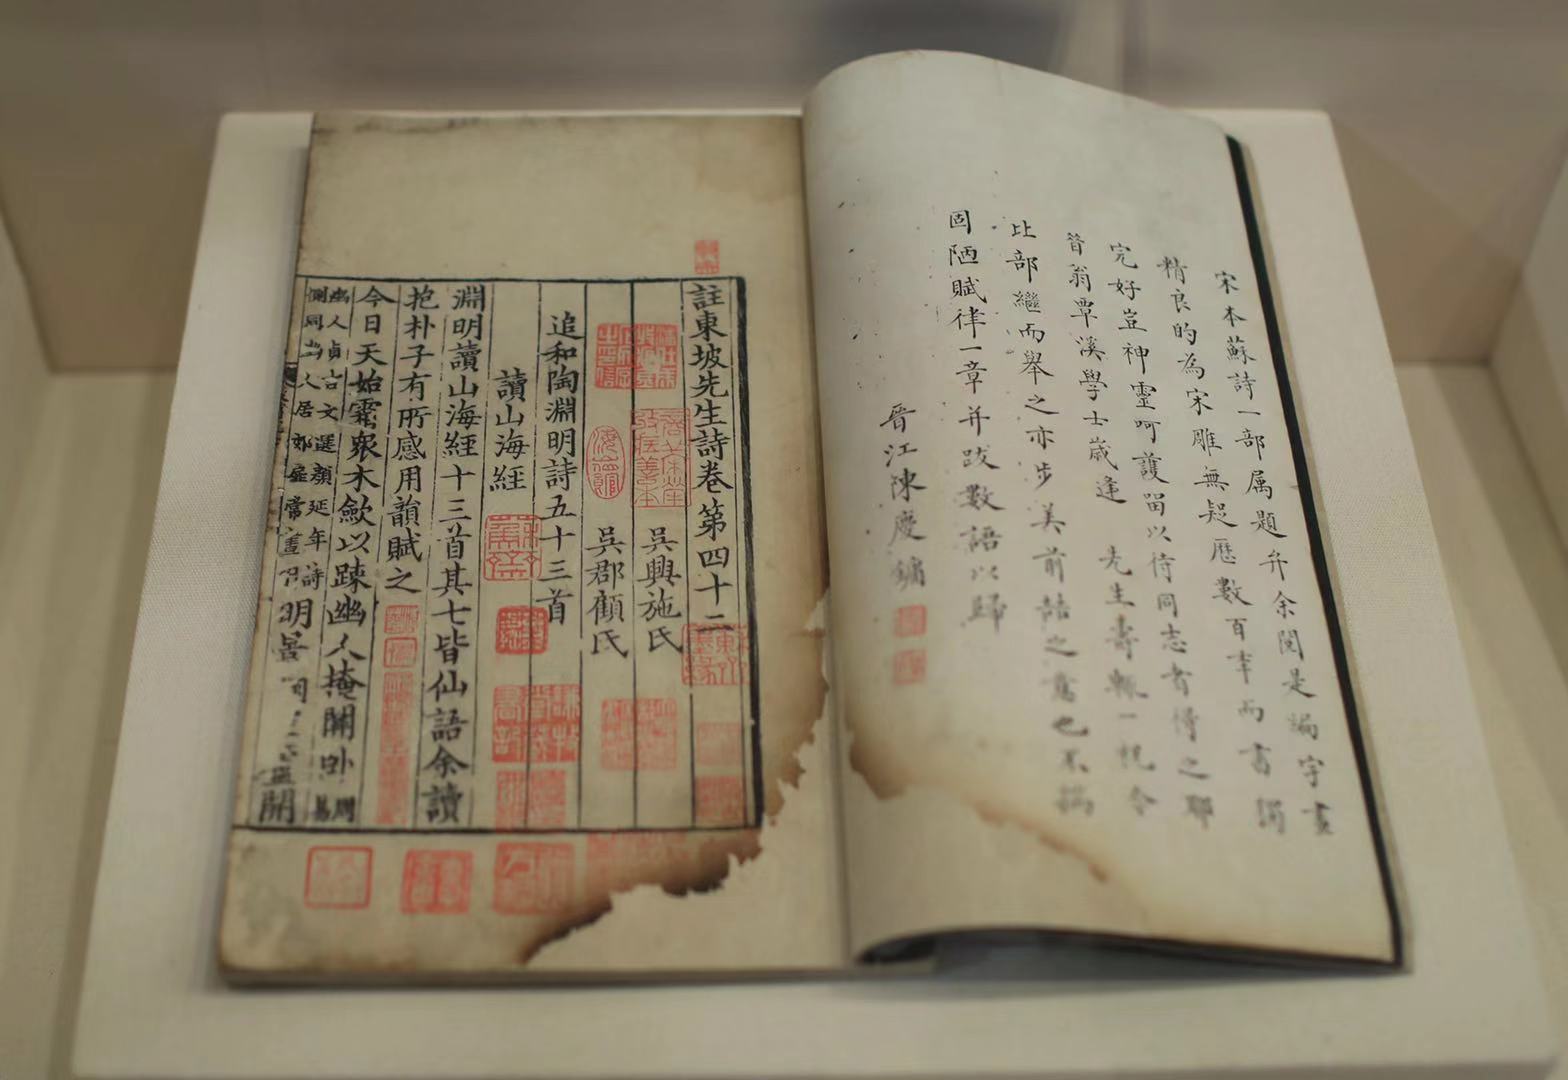 宋本蘇詩一部属題升余閱是編字畫
精良的為宋雕無疑歷數百年而書獨
完好豈神靈呵護留以待同志者得之耶
昔翁覃溪學士歲逢 先生壽輒一祝今
比部繼而舉之亦步美前喆之意也不揣
固陋賦律一章并跋數語以歸
晉江陳慶鏞
註東坡先生詩卷第四十二
吳興施氏
吳郡顧氏
追和陶淵明詩五十三首
讀山海經
淵明讀山海經十三首其七皆仙語余讀
抱朴子有所感用韻賦之
今日天始霜衆木斂以疎幽人掩關卧周易
幽人貞吉文選顏延年詩
側同幽人居郊扉常晝閉
明景
開